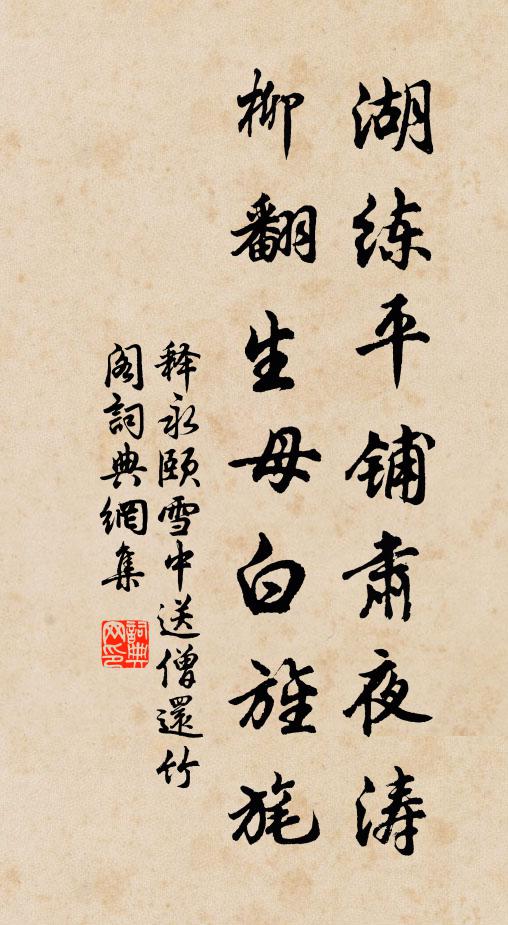 湖练平铺肃夜涛
柳翻生母白旌旄
释永颐雪中送僧還竹
阁詞典網集
詞典网印